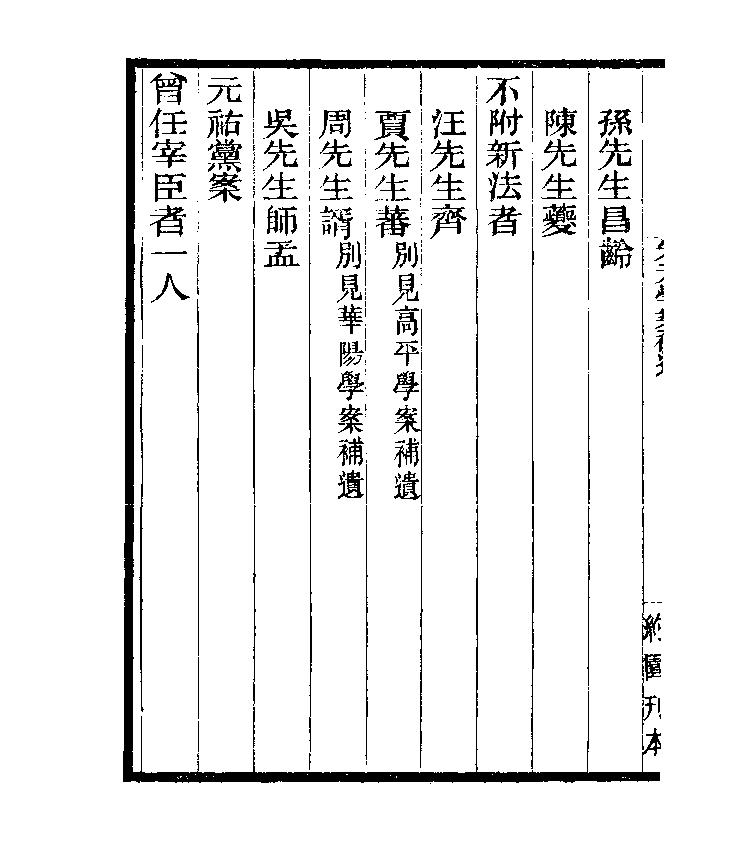 孫先生昌齡
陳先生夔
不附新法者
汪先生齊
賈先生蕃別見高平學案補遺
周先生諝別見華陽學案補遺
吳先生師孟
元祐黨案
曾任宰臣者一人
刊本